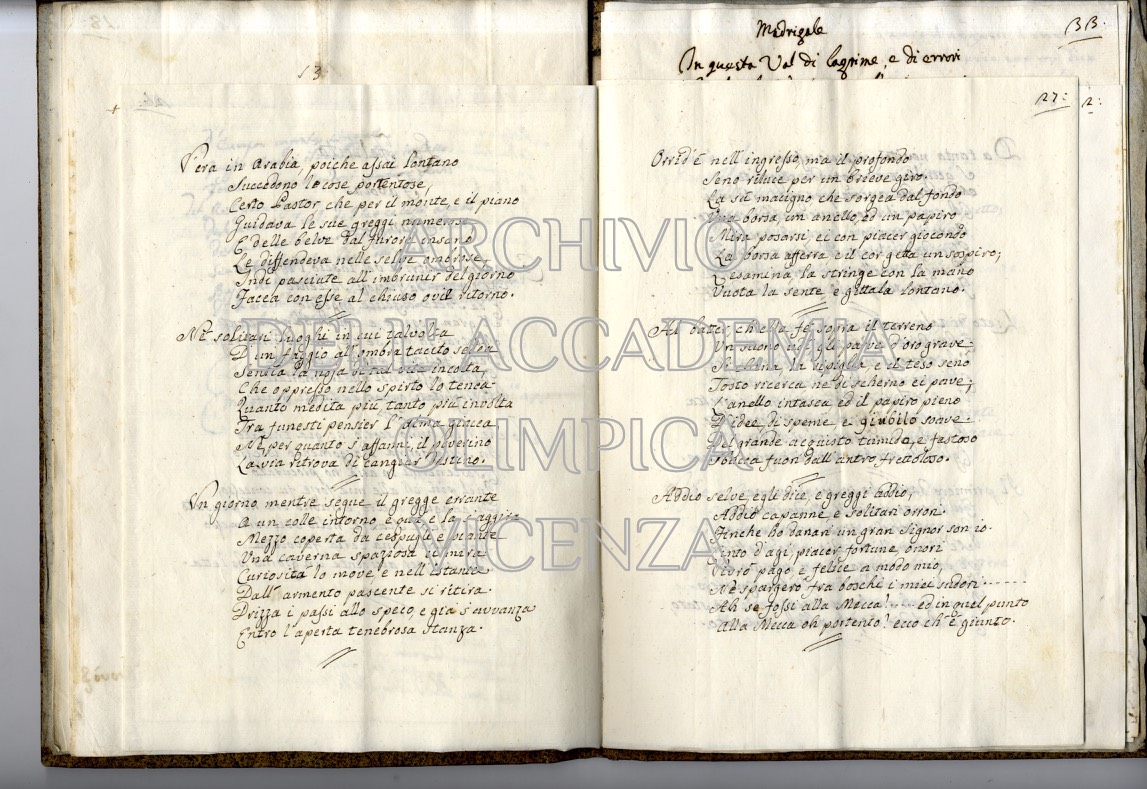 13
V'era in Arabia, poiche assai lontano
Succedono le cose portentose,
Certo Pastor che per il monte, e il piano
Guidava le sue greggi numerose
E delle belve dal furore insano
Le diffendeva nelle selve ombrose,
Indi pasciute all'imbrunir del giorno
Facea con esse al chiuso ovil ritorno.
Ne' solitari luoghi in cui talvolta
D'un faggio all'ombra tacito sedea
Sentia la noja di tal vita incolta,
Che oppresso nello spirto lo tenea
Quanto medita più, tanto più involta
Tra funesti pensier l'alma
Ne per quanto s'affanni il poverino
La via ritrova di cangiar Destino.
Un giorno mentre segue il gregge errante
A un colle intorno, e quà e là s'aggira
Mezzo coperta da cespugli e piante
Una caverna spaziosa ei mira
Curiosità lo move, e nell'istante
Dall'armento pascente si ritira.
Drizza i passi allo speco, e già s'avvanza
Entro l'aperta tenebrosa stanza.
Madrigale
33.
In questa Val di lagrime, e di errori
27:
2:
Orrid'è nell'ingresso, ma il profondo
Seno riluce per un breve giro,
La sù macigno che sorgea dal fondo
Una borsa, un anello, ed un papiro
Mira posarsi, ei con piacer giocondo
La borsa afferra, e il cor getta un sospiro;
L'esamina, la stringe con la mano
Vuota la sente e gittala lontano.
Al bater, ch'ella fè sopra il terreno
Un suono udì gli parve d'oro grave
Si china, la ripiglia, e il teso seno
Tosto ricerca, ne di scherno ei pave;
L'anello intasca, ed il papiro pieno
D'idee, di speme, e giubilo soave
Del grande acquisto tumido, e fastoso
Sbocca fuori dall'antro frettoloso.
Addio selve, egli dice, e greggi addio,
Addio capanne, e solitari orrori.
Finche hò danari un gran Signor son io.
Cinto d'agi, piacer, fortune, onori
Vivrò pago, e felice a modo mio,
Nè spargerò frà boschi i miei sudori......
Ah se fossi alla Mecca! ... ed in quel punto
Alla Mecca oh portento! ecco ch'è giunto.
ARCHIVIO
DELL'ACCADEMIA
OLIMPICA
VICENZA